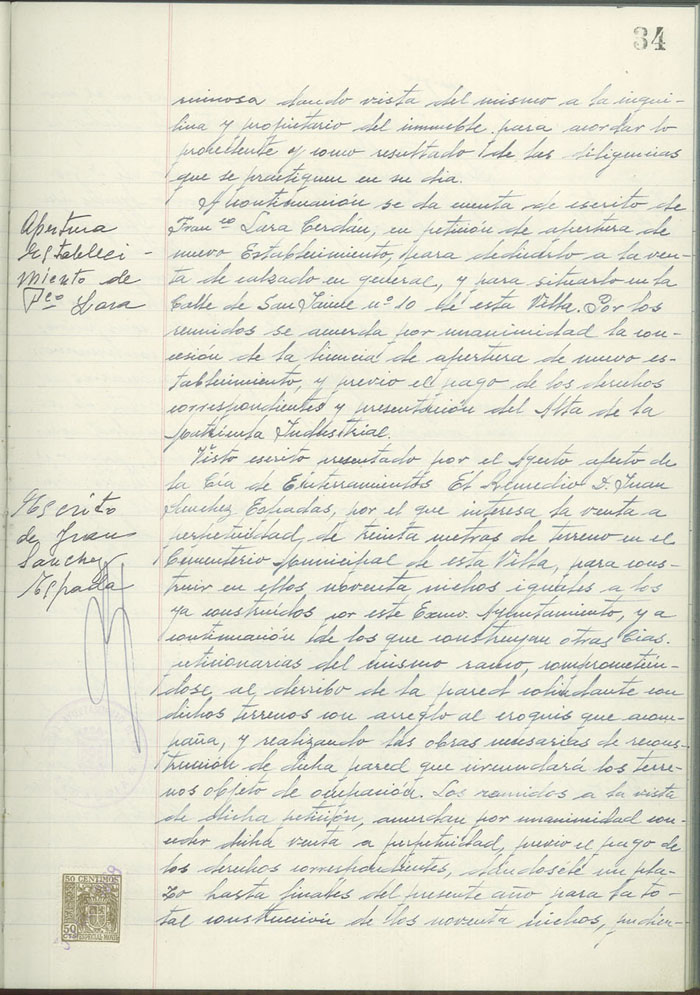 34
ruinosa dando vista del mismo a la inqui-
lina y propietario del inmueble, para acordar lo
procedente y como resultado de las diligencias
que se practiquen en su dia.
Apertura
Estableci-
miento de
Fco Lara
A continuación se da cuenta de escrito de
Franco Lara Cerdán, en petición de apertura de
nuevo Establecimiento, para dedicarlo a la ven-
ta de calzado en general, y para situarlo en la
Calle de San Jaime nº 10 de esta Villa. Por los
reunidos se acuerda por unanimidad la con-
cesión de la licencia de apertura de nuevo es-
tablecimiento, y previo el pago de los derechos
correspondientes y presentación del Alta de la
Matrícula Industrial.
Escrito
de Juan
Sanchez
Espada
Visto escrito presentado por el Agente afecto de
la Cía de Enterramientos El Remedio D. Juan
Sanchez Espadas, por el que interesa la venta a
perpetuidad, de treinta metros de terreno en el
Cementerio Municipal de esta Villa, para cons-
truir en ellos noventa nichos iguales a los
ya construídos por este Excmo. Ayuntamiento, y a
continuación de los que construyan otras Cías.
peticionarias del mismo ramo, comprometién-
dose, al derribo de la pared colindante con
dichos terrenos con arreglo al croquis que acom-
paña, y realizando las obras necesarias de recons-
trucción de dicha pared que circundará los terre-
nos objeto de ocupación. Los reunidos a la vista
de dicha petición, acuerdan por unanimidad con-
ceder dicha venta a perpetuidad, previo el pago de
los derechos correspondientes, dándosele un pla-
zo hasta finales del presente año para la to-
tal construcción de los noventa nichos, pudien-
50 CENTIMOS
50
ESPECIAL MOVIL